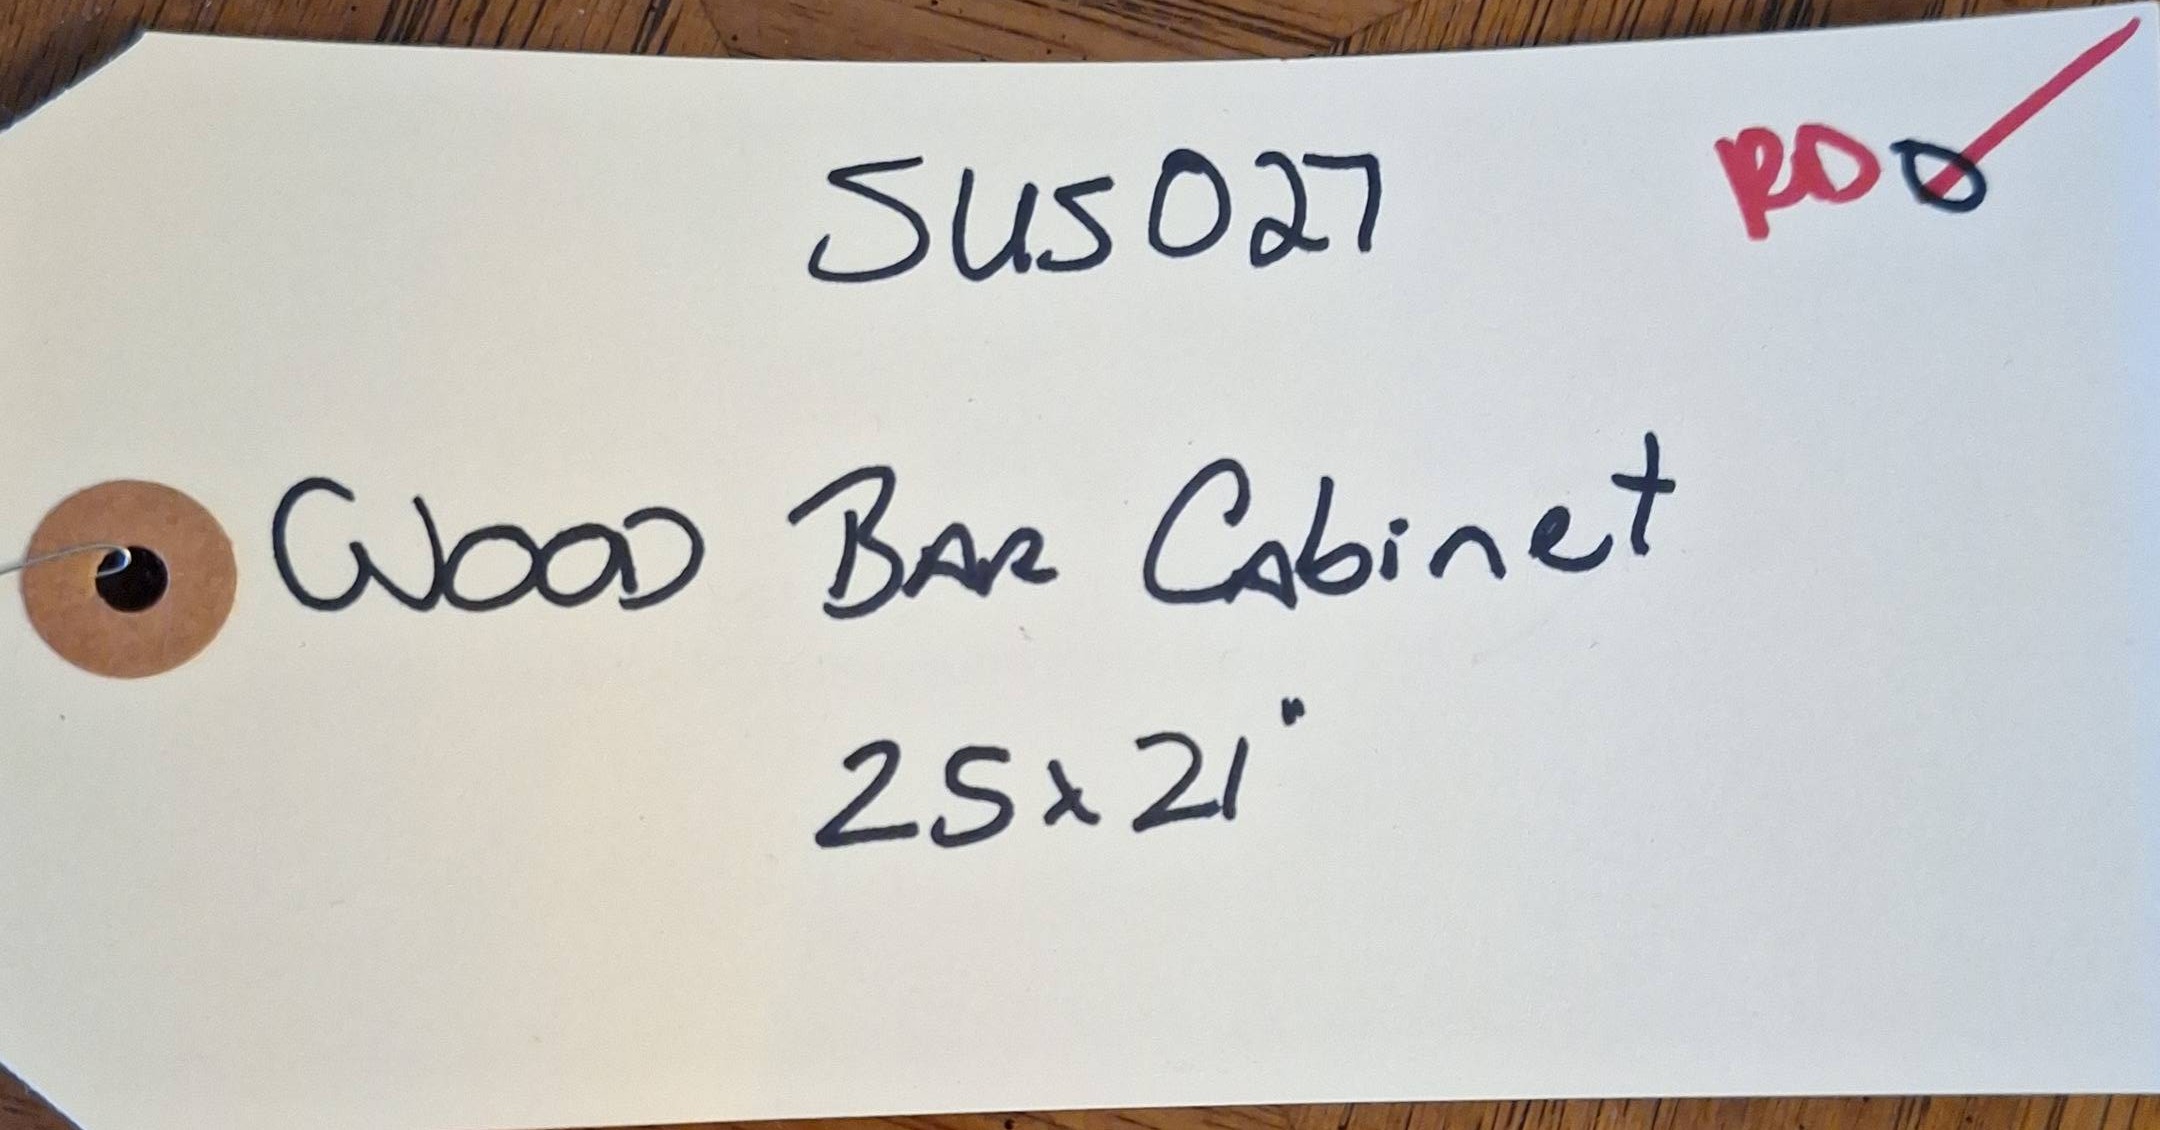 SUS027 RD
WOOD BAR CAbinet
25x21"